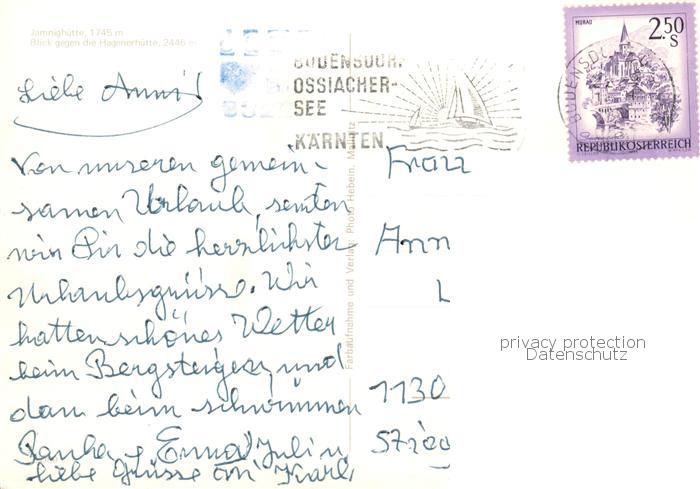 Jamnighütte, 1745 m
Blick gegen die Hagenerhütte, 2446 m
BODENSDORF
OSSIACHER-
SEE
KÄRNTEN
MURAU
2.50
S
REPUBLIK ÖSTERREICH
Liebe Anni!
Von unseren gemein-
samen Urlaub senden
wir Dir die herzlichsten
Urlaubsgrüsse. Wir
hatten schönes Wetter
beim Bergsteigen und
dann beim schwimmen
Erna Juli
liebe Grüsse an Karl
Farbaufnahme und Verlag: Photo Hebein,
Franz
Ann
L
1130
privacy protection
Datenschutz